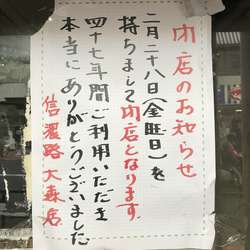 閉店のお知らせ
二月二十八日(金曜日)を
持ちまして閉店となります
四十七年間ご利用いただき
本当にありがとうございました
信濃路 大森店